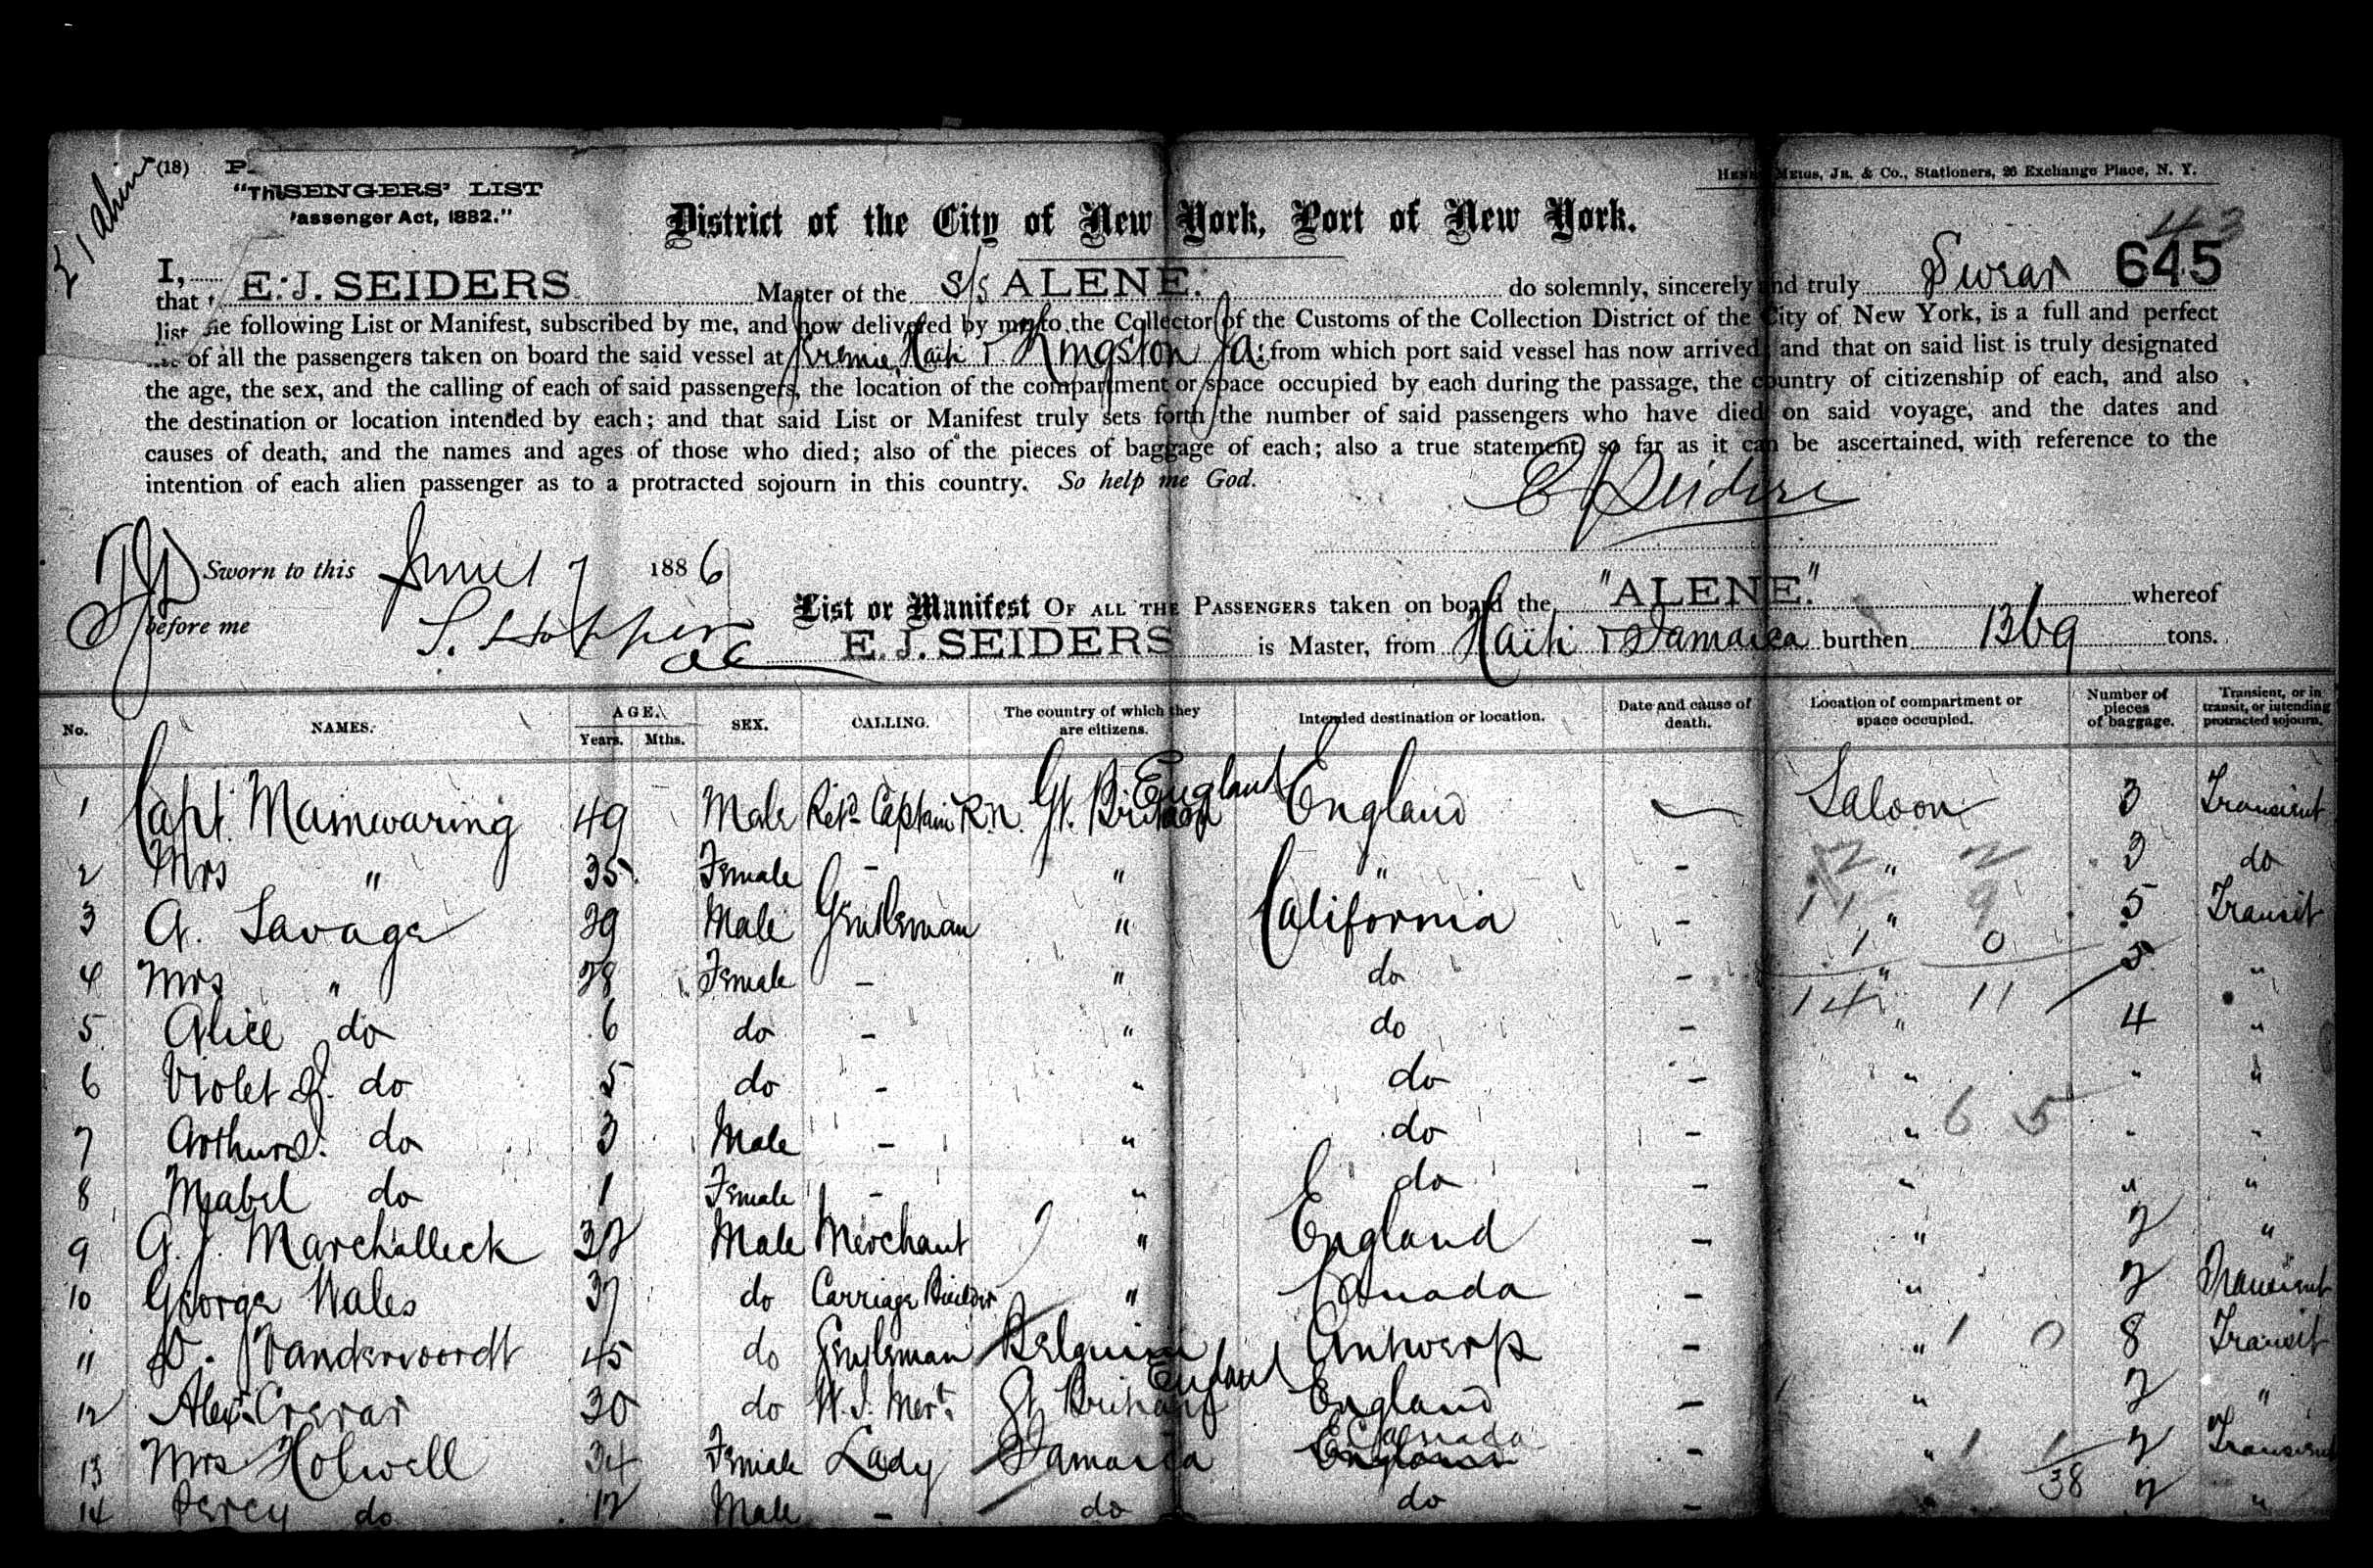 (18)
"The SENGERS' LIST
assenger Act, 1882."
HENRY MEIGS, JR. & CO., Stationers, 26 Exchange Place, N. Y.
District of the City of New York, Port of New York.
43
645
I, E. J. SEIDERS Master of the S/S ALENE. do solemnly, sincerely and truly Swear
that the following List or Manifest, subscribed by me, and now delivered by me to the Collector of the Customs of the Collection District of the City of New York, is a full and perfect
list of all the passengers taken on board the said vessel at Jeremie, Haiti & Kingston Ja: from which port said vessel has now arrived; and that on said list is truly designated
the age, the sex, and the calling of each of said passengers, the location of the compartment or space occupied by each during the passage, the country of citizenship of each, and also
the destination or location intended by each; and that said List or Manifest truly sets forth the number of said passengers who have died on said voyage, and the dates and
causes of death, and the names and ages of those who died; also of the pieces of baggage of each; also a true statement, so far as it can be ascertained, with reference to the
intention of each alien passenger as to a protracted sojourn in this country. So help me God.
E J Seiders
Sworn to this June 7 1886
before me
List or Manifest OF ALL THE PASSENGERS taken on board the "ALENE." whereof
E. J. SEIDERS is Master, from Haiti & Jamaica burthen 1369 tons.
No. NAMES. AGE. Years. Mths. SEX. CALLING. The country of which they are citizens. Intended destination or location. Date and cause of death. Location of compartment or space occupied. Number of pieces of baggage. Transient, or in transit, or intending protracted sojourn.
1 Capt. Mainwaring 49 Male Retd Captain R.N. Gt. Britain England England — Saloon 3 Transient
2 Mrs " 35 Female - " " - " 3 do
3 A. Savage 39 Male Gentleman " California - " 5 Transit
4 Mrs " 28 Female - " do - " 5 "
5 Alice do 6 do - " do - " 4 "
6 Violet J. do 5 do - " do - " " "
7 Arthur S. do 3 Male - " do - " " "
8 Mabel do 1 Female - " do - " " "
9 G. J. Marchalleck 32 Male Merchant " England - " 2 "
10 George Wales 37 do Carriage Builder " Canada - " 2 Transient
11 D. Vandervoordt 45 do Gentleman Belgium Antwerp - " 8 Transit
12 Alexr. Crerar 30 do W. I. Mert. Gt Britain England England - " 2 "
13 Mrs Holwell 34 Female Lady Jamaica England Canada - " 2 Transient
14 Percy do 12 Male - do do - 2 "